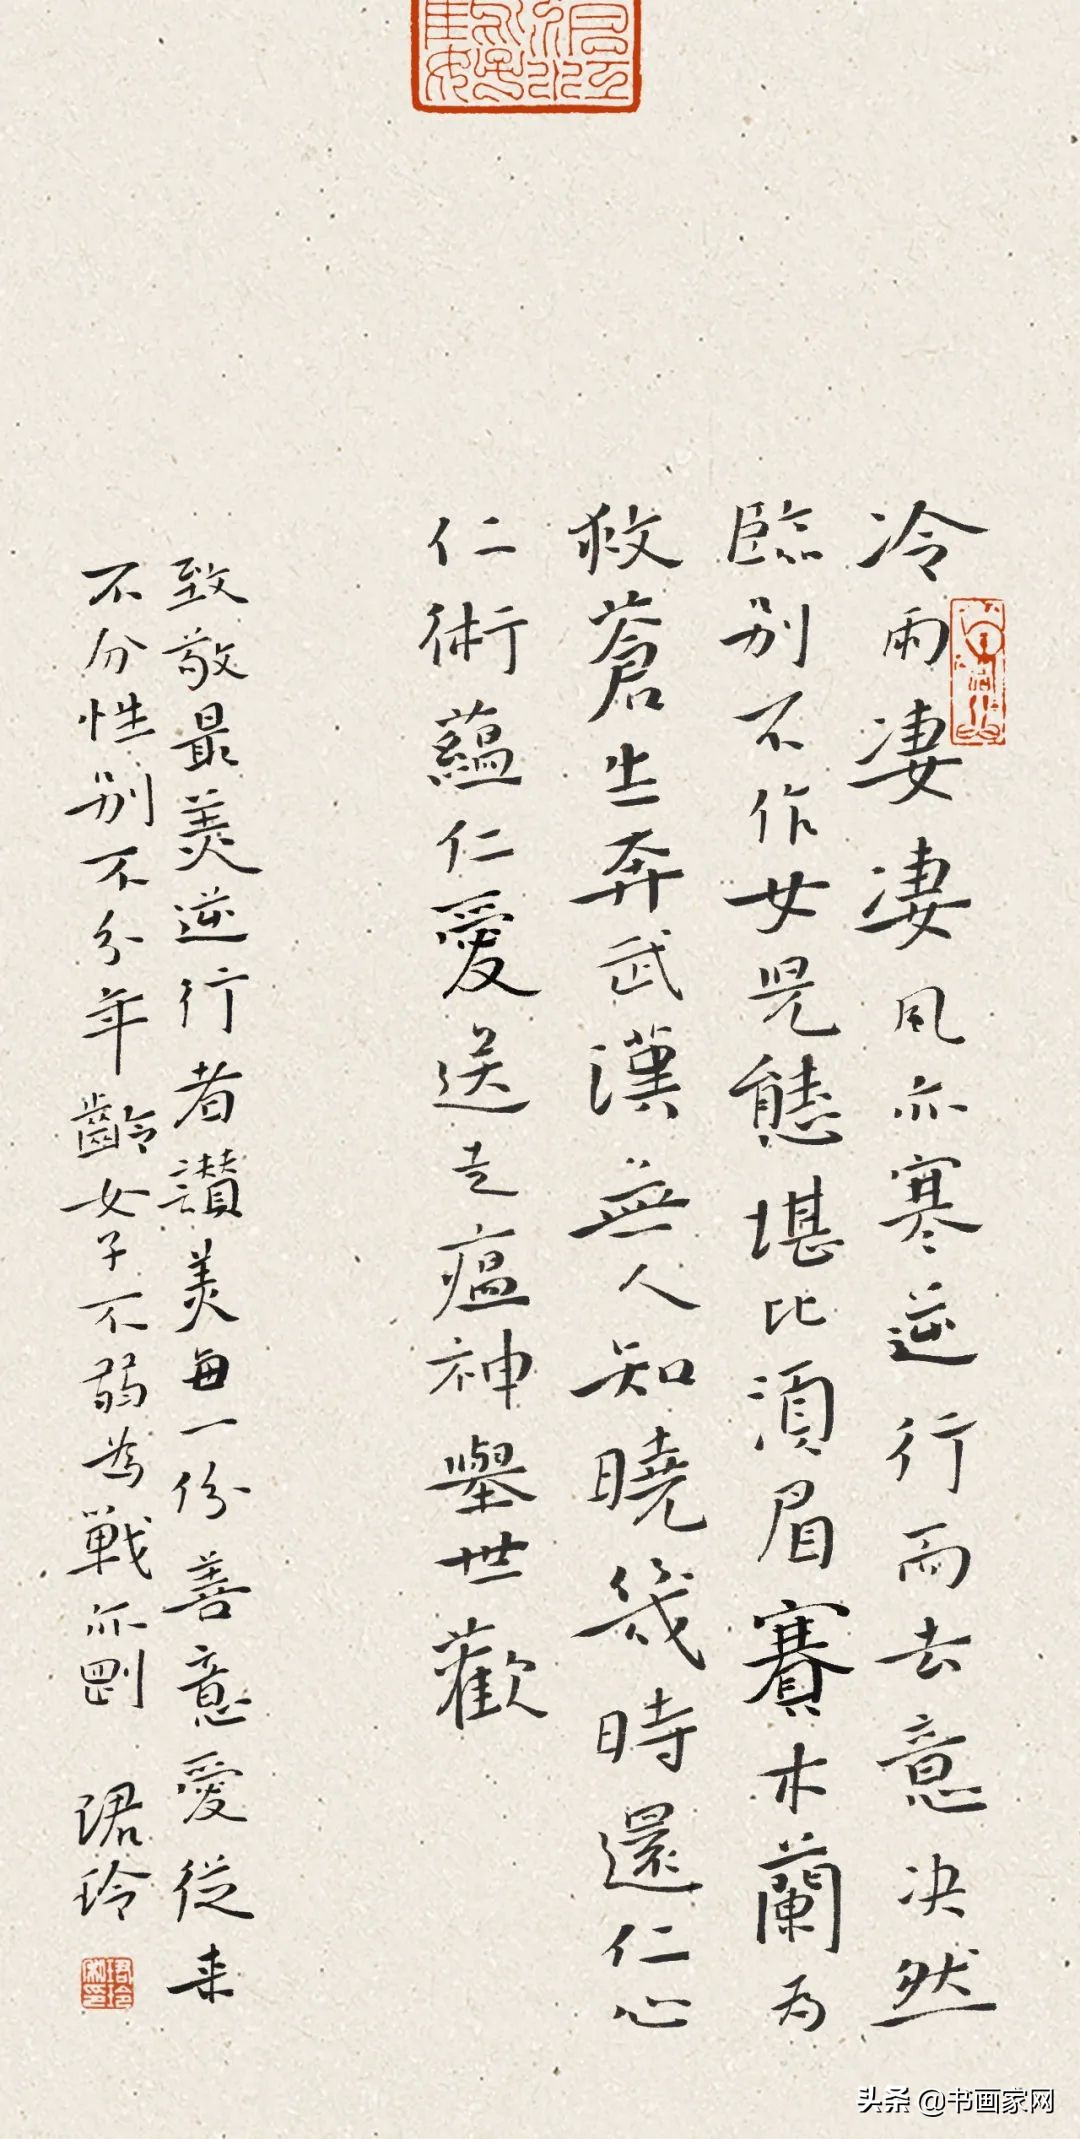 冷雨淒淒風亦寒逆行而去意决然
臨别不作女兒態堪比須眉賽木蘭為
救蒼生奔武漢無人知曉幾時還仁心
仁術蘊仁愛送走瘟神舉世歡
致敬最美逆行者讚美每一份善意愛從来
不分性别不分年齡女子不弱為戰亦剛
珺玲
头条 @书画家网